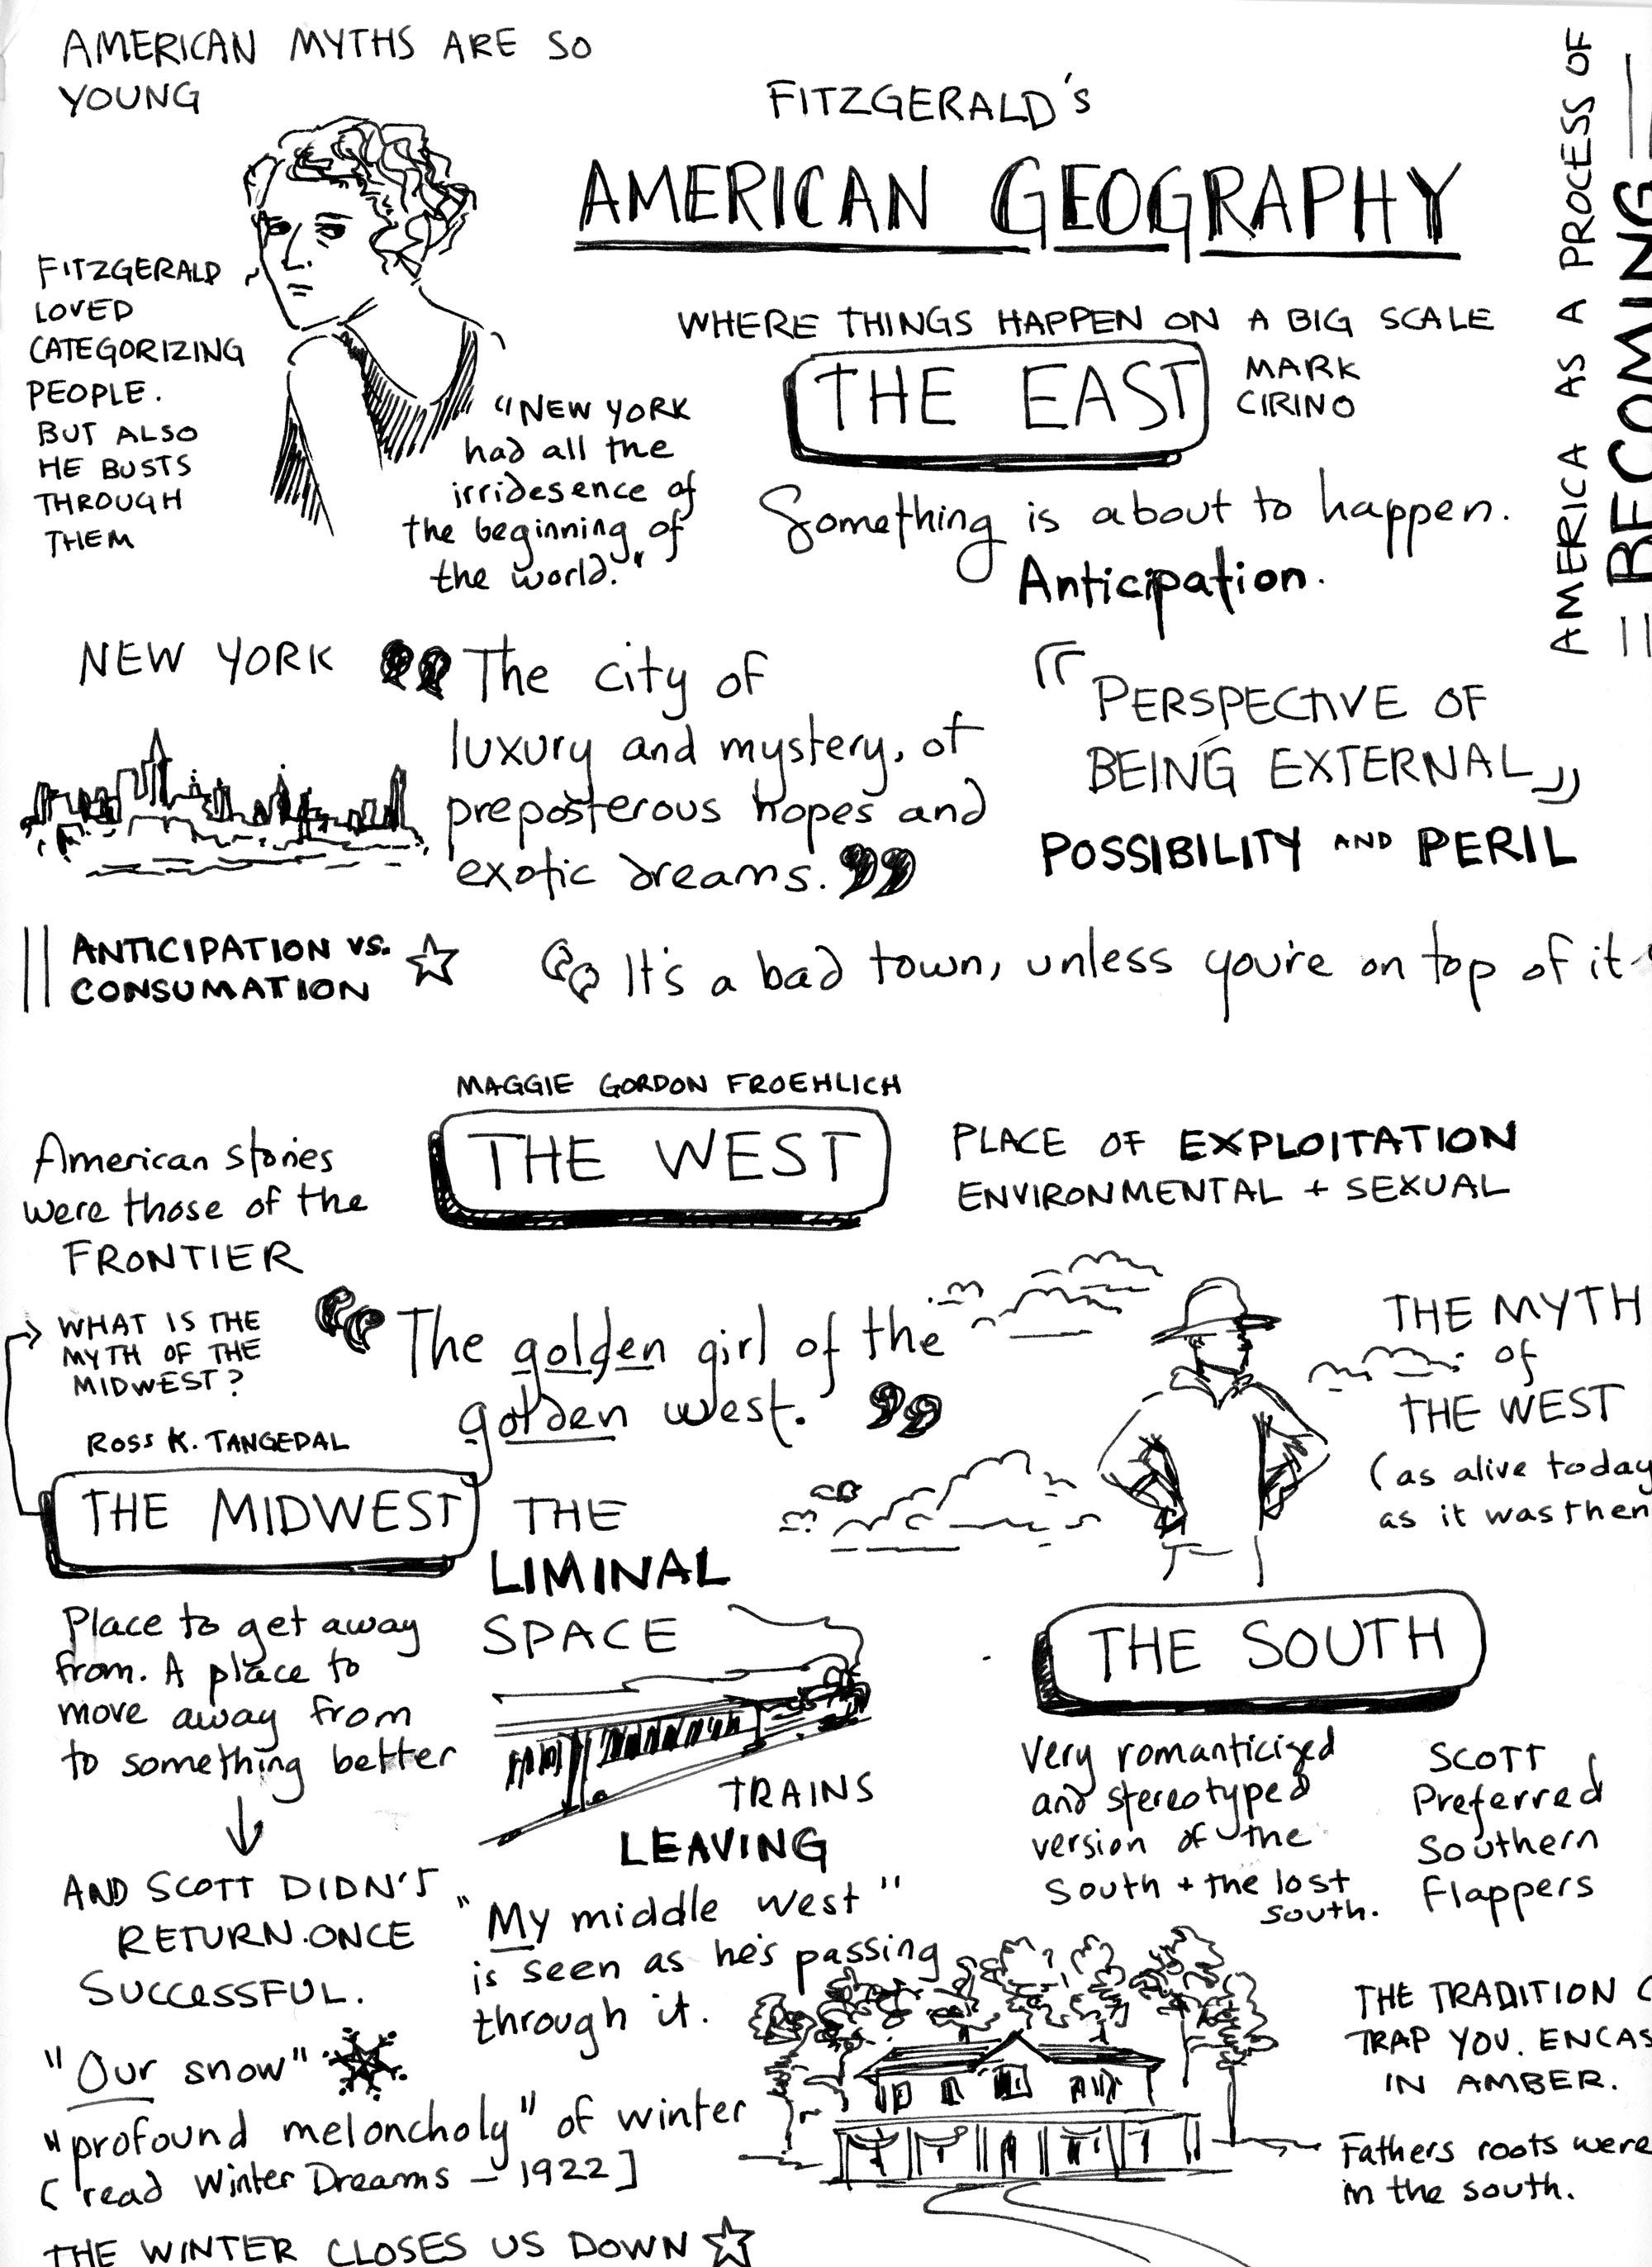 AMERICAN MYTHS ARE SO
YOUNG
FITZGERALD's
AMERICAN GEOGRAPHY
AMERICA AS A PROCESS OF
BECOMING
FITZGERALD
LOVED
CATEGORIZING
PEOPLE.
BUT ALSO
HE BUSTS
THROUGH
THEM
"NEW YORK
had all the
irridesence of
the beginning of
the world."
WHERE THINGS HAPPEN ON A BIG SCALE
THE EAST
MARK
CIRINO
Something is about to happen.
Anticipation.
NEW YORK
"The city of
luxury and mystery, of
preposterous hopes and
exotic dreams."
"PERSPECTIVE OF
BEING EXTERNAL"
POSSIBILITY AND PERIL
ANTICIPATION VS.
CONSUMATION
"It's a bad town, unless you're on top of it"
MAGGIE GORDON FROEHLICH
THE WEST
American stories
were those of the
FRONTIER
PLACE OF EXPLOITATION
ENVIRONMENTAL + SEXUAL
"The golden girl of the
golden west."
THE MYTH
of
THE WEST
(as alive today
as it was then
WHAT IS THE
MYTH OF THE
MIDWEST?
ROSS K. TANGEDAL
THE MIDWEST
THE
LIMINAL
SPACE
Place to get away
from. A place to
move away from
to something better
AND SCOTT DIDN'T
RETURN.ONCE
SUCCESSFUL.
TRAINS
LEAVING
"My middle west"
is seen as he's passing
through it.
"Our snow"
"profound meloncholy" of winter
[read Winter Dreams - 1922]
THE WINTER CLOSES US DOWN
THE SOUTH
Very romanticized
and stereotyped
version of the
South + the lost
south.
SCOTT
Preferred
Southern
Flappers
THE TRADITION
TRAP YOU. ENCAS
IN AMBER.
Fathers roots were
in the south.